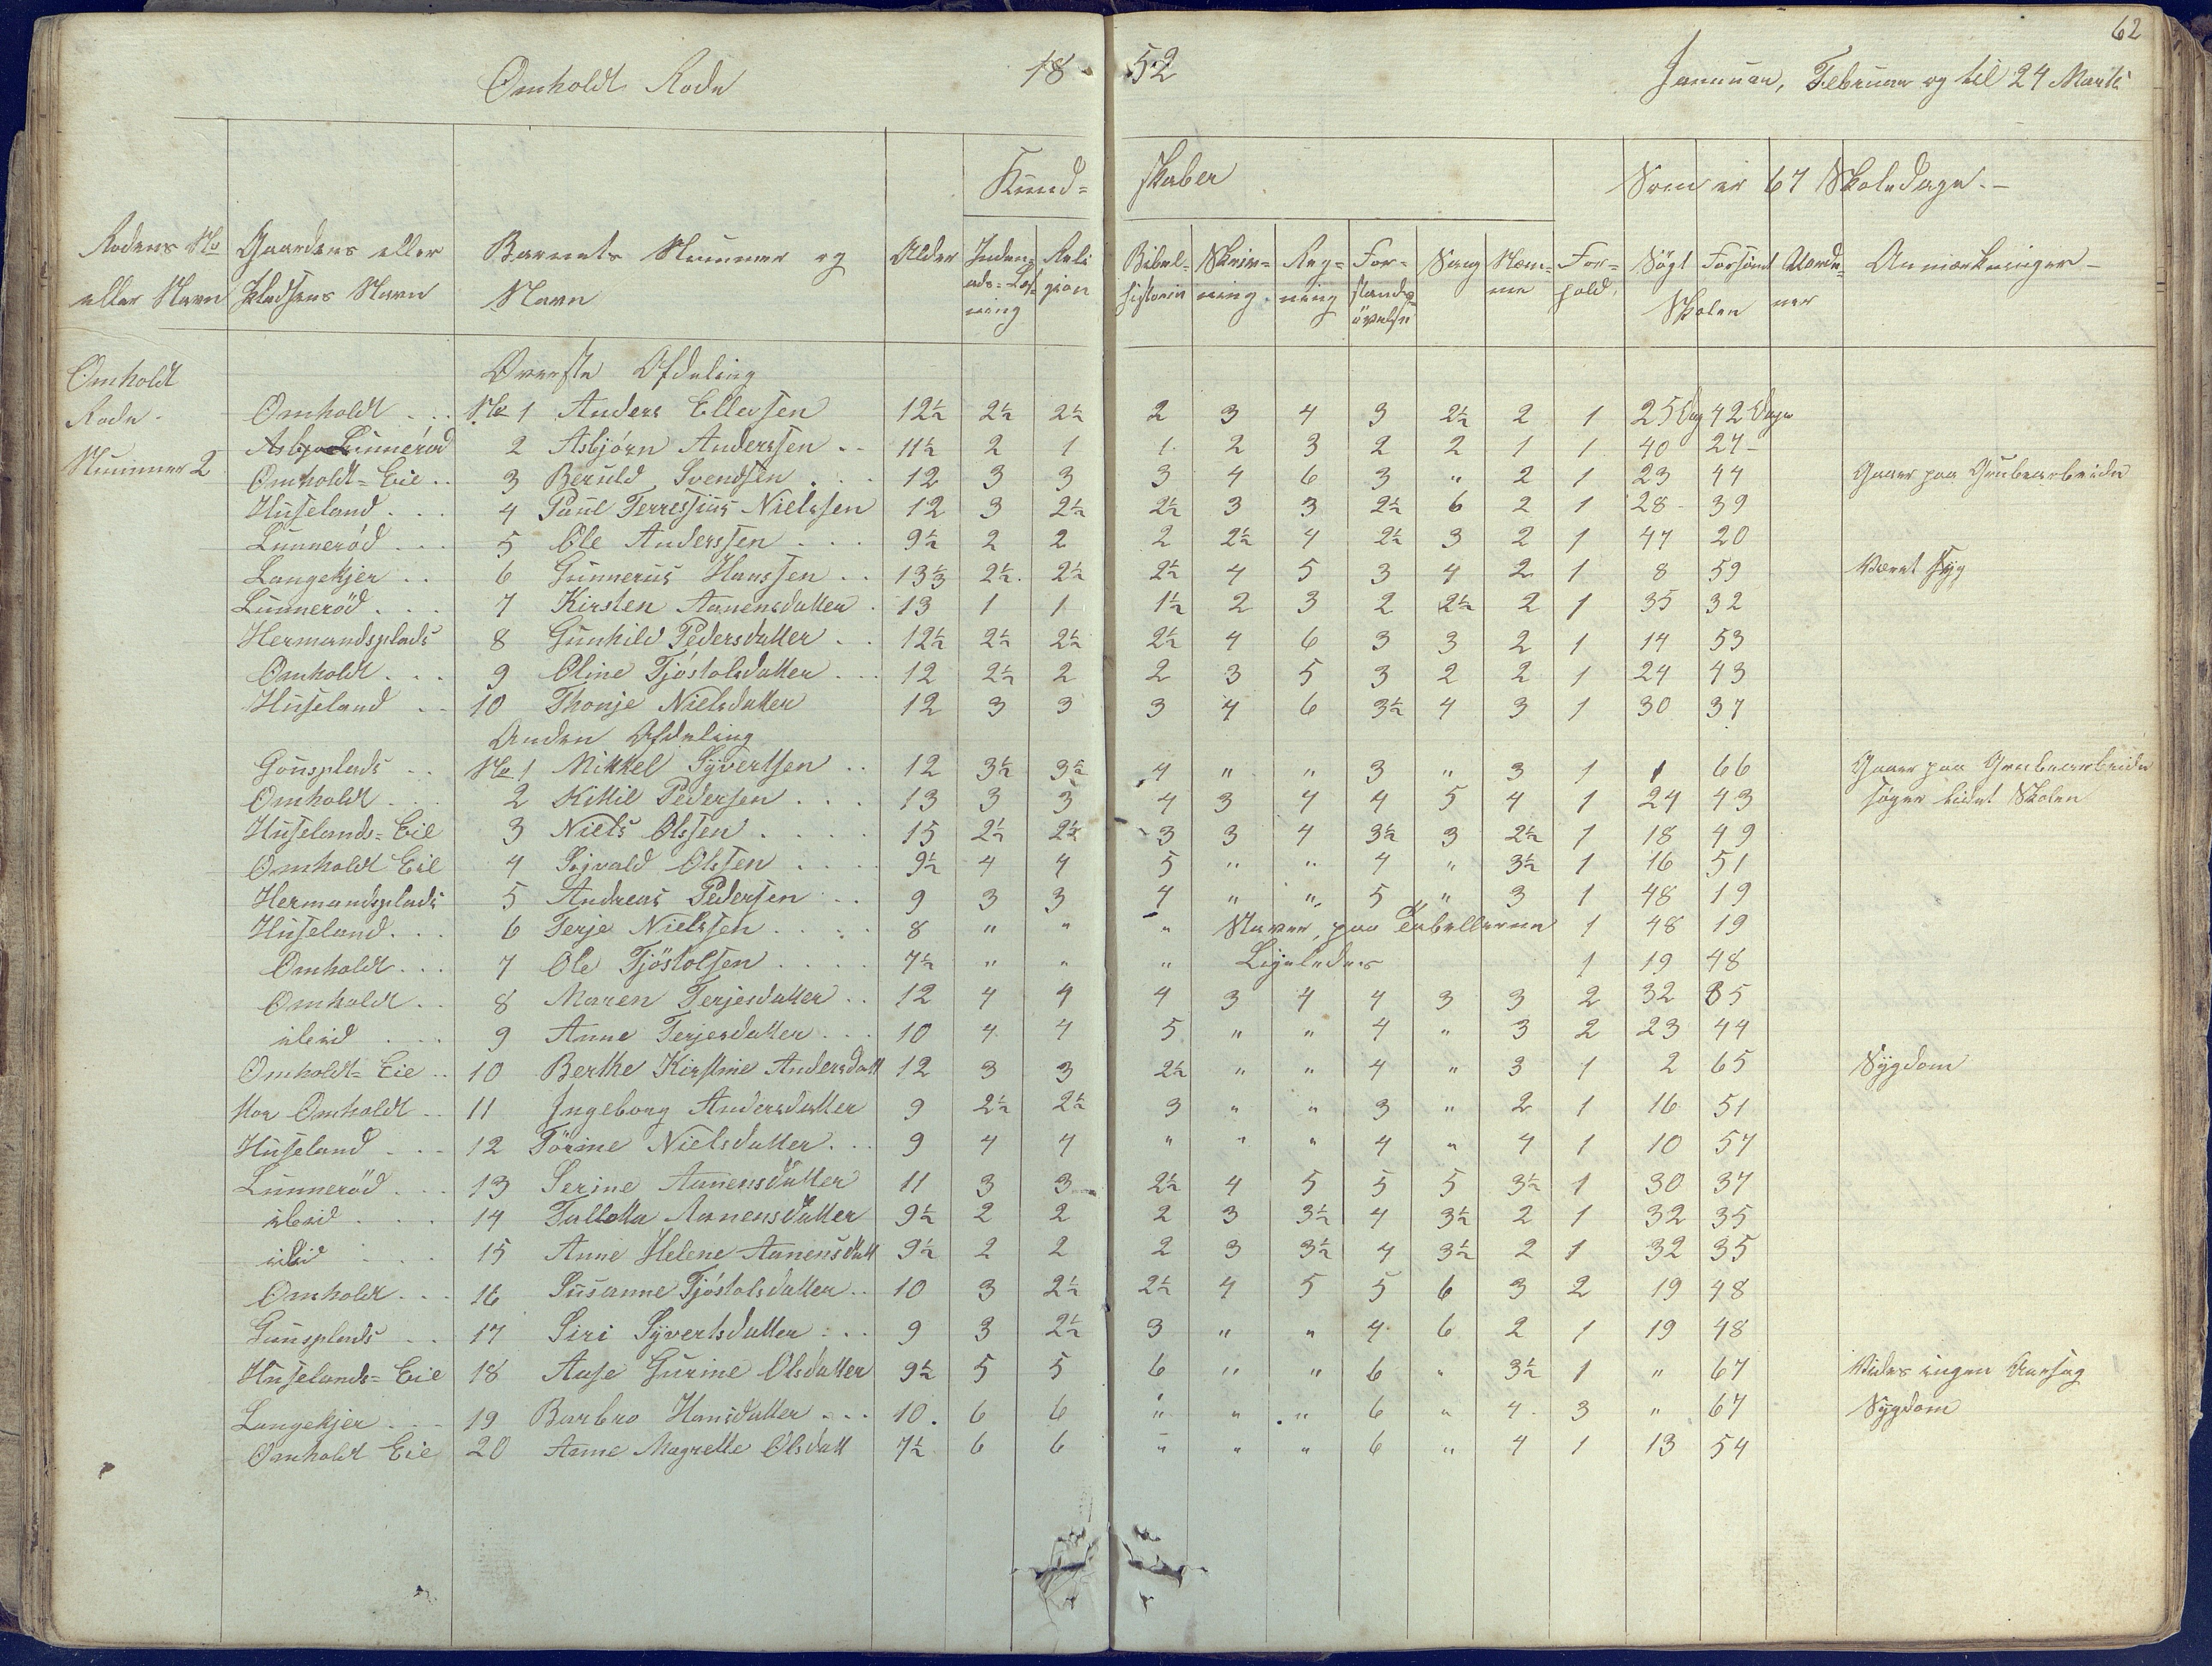 62
Omholdt Rode 18 52 Januar, Februar og til 24 Marts
Kund= skaber Som er 67 Skoledage.-
Rodens No eller Navn Gaardens eller Pladsens Navn Barnets Nummer og Navn Alder Inden=ads=Læsning Religion Bibel=historie Skriv=ning Reg=ning For=stands=övelse Sang Nem=me For=hold. Sögt Forsömt Skolen Uorde=ner Anmærkninger -
Omholdt Rode - Nummer 2
Överste Afdeling
Omholdt . . . No 1 Anders Ellefsen 12½ 2½ 2½ 2 3 4 3 2½ 2 1 25 Dag 42 Dage
Lunneröd 2 Asbjörn Anderssen . . 11½ 2 1 1 2 3 2 2 1 1 40 27 -
Omholdt=Eie . . 3 Beruld Svendsen . . . 12 3 3 3 4 6 3 " 2 1 23 44 Gaaer paa Grubearbeide
Huseland . . . 4 Paul Terressius Nielssen 12 3 2½ 2½ 3 3 2½ 6 2 1 28 - 39
Lunneröd . . . 5 Ole Anderssen . . . 9½ 2 2 2 2½ 4 2½ 3 2 1 47 20
Langekjer . . 6 Gunnerus Hanssen . . 13⅓ 2½ 2½ 2½ 4 5 3 4 2 1 8 59 Været syg
Lunneröd . . . 7 Kirsten Aanensdatter . 13 1 1 1½ 2 3 2 2½ 2 1 35 32
Hermandsplads 8 Gunhild Pedersdatter . . 12½ 2½ 2½ 2½ 4 6 3 3 2 1 14 53
Omholdt . . . 9 Oline Tjöstolsdatter . . . 12 2½ 2 2 3 5 3 2 2 1 24 43
Huseland . . 10 Thonje Nielsdatter 12 3 3 3 4 6 3½ 4 3 1 30 37
Anden Afdeling
Gunsplads . . No 1 Mikkel Syvertsen . . 12 3½ 3½ 4 " " 3 " 3 1 1 66 Gaaer paa Grubearbeide
Omholdt . . . 2 Kittil Pedersen . . . 13 3 3 4 3 4 4 5 4 1 24 43 söger lidet Skolen
Huselands=Eie 3 Niels Olssen . . . . 15 2½ 2½ 3 3 4 3½ 3 2½ 1 18 49
Omholdt Eie 4 Sijvald Olssen . . . . 9½ 4 4 5 " " 4 " 3½ 1 16 51
Hermandsplads 5 Andreas Pedersen . . 9 3 3 4 " " 5 " 3 1 48 19
Huseland . . . 6 Terje Nielssen . . . . 8 " " " Staver paa Tabellerne 1 48 19
Omholdt . . . 7 Ole Tjöstolsen . . . . 7½ " " " Ligeledes 1 19 48
Omholdt . . 8 Maren Terjesdatter . . 12 4 4 4 3 4 4 3 3 2 32 35
ibid . . . 9 Anne Terjesdatter . . . 10 4 4 5 " " 4 " 3 2 23 44
Omholdt=Eie . . 10 Berthe Kirstine Andersdatt 12 3 3 2½ " " 4 " 3 1 2 65 Sygdom
Omholdt . . 11 Ingeborg Andersdatter 9 2½ 2½ 3 " " 3 " 2 1 16 51
Huseland . . . 12 Törine Nielsdatter . . . 9 4 4 " " " 4 " 4 1 10 57
Lunneröd . . . 13 Serine Aanensdatter 11 3 3 2½ 4 5 5 5 3½ 1 30 37
ibid . . . 14 Tallotta Aanensdatter 9½ 2 2 2 3 3½ 4 3½ 2 1 32 35
ibid . . . 15 Anne Helene Aanensdatt 9½ 2 2 2 3 3½ 4 3½ 2 1 32 35
Omholdt . . . 16 Susanne Tjöstolsdatter . . 10 3 2½ 2½ 4 5 5 6 3 2 19 48
Gunsplads . . 17 Siri Syvertsdatter . . . 9 3 2½ 3 " " 4 6 2 1 19 48
Huselands=Eie 18 Aase Gurine Olsdatter 9½ 5 5 6 " " 6 " 3½ 1 " 67 Vides ingen Aarsag
Langekjer . . . 19 Barbro Hansdatter . . . 10 . 6 6 " " " 6 " 4 3 " 67 Sygdom
Omholdt Eie 20 Anne Magrette Olsdatt 7½ 6 6 " " " 6 " 4 1 13 54